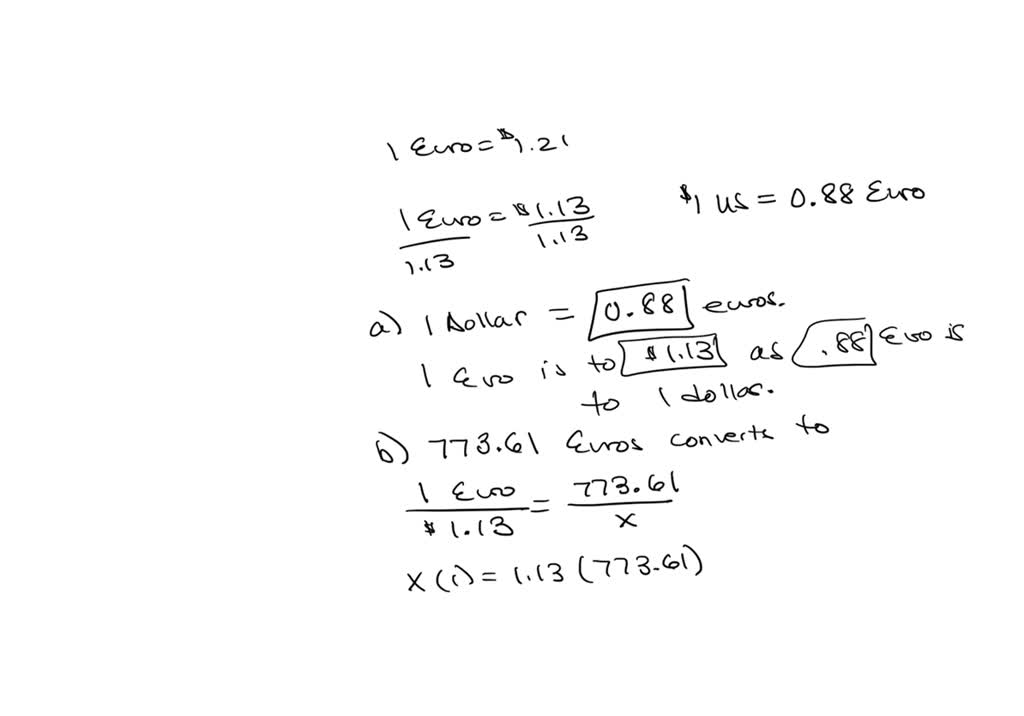 1 Euro = $1.21
1 Euro = $1.13 $1 US = 0.88 Euro
1.13 1.13
a) 1 Dollar = 0.88 euros.
1 Euro is to $1.13 as .88 Euro is
to 1 dollar.
b) 773.61 Euros converts to
1 Euro = 773.61
$1.13 x
x(1) = 1.13(773.61)